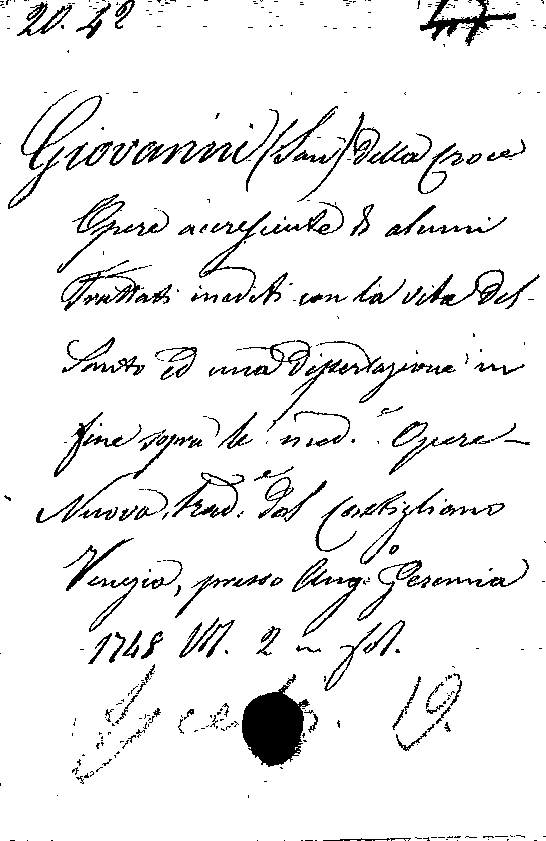 20. 42
Giovanni (San) della Croce
Opere accresciute di alcuni
Trattati inediti con la vita del
Santo ed una dissertazione in
fine sopra le med.e Opere -
Nuova trad.e dal Castigliano
Venezia, presso Ang.o Geremia
1748 Vol. 2 in fol.
19.